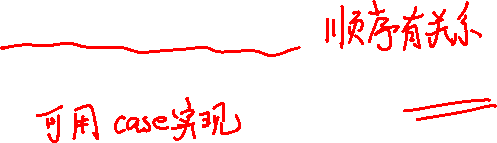 顺序有关系
可用case实现